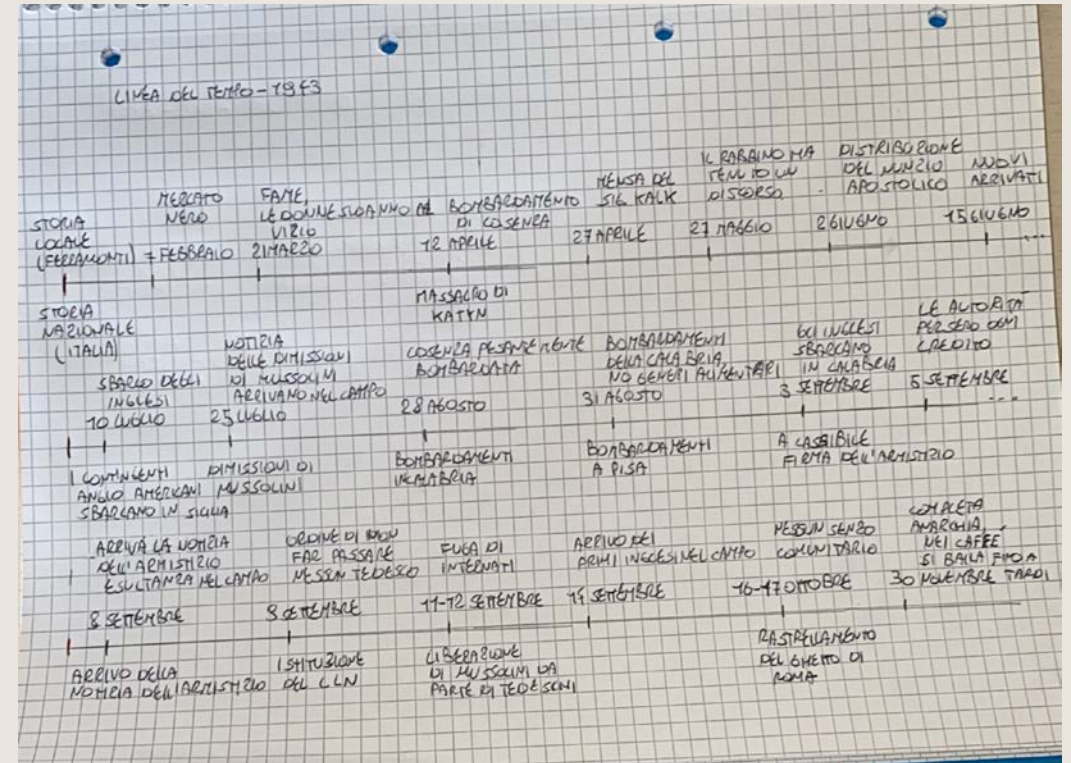 LINEA DEL TEMPO - 1943
STORIA
LOCALE
(FERRAMONTI)
MERCATO
NERO
7 FEBBRAIO
FAME,
LE DONNE SI DANNO AL
VIZIO
21 MARZO
BOMBARDAMENTO
DI COSENZA
12 APRILE
MENSA DEL
SIG KALK
27 APRILE
IL RABBINO HA
TENUTO UN
DISCORSO
27 MAGGIO
DISTRIBUZIONE
DEL NUNZIO
APOSTOLICO
2 GIUGNO
NUOVI
ARRIVATI
15 GIUGNO
...
STORIA
NAZIONALE
(ITALIA)
MASSACRO DI
KATYN
SBARCO DEGLI
INGLESI
10 LUGLIO
NOTIZIA
DELLE DIMISSIONI
DI MUSSOLINI
ARRIVANO NEL CAMPO
25 LUGLIO
COSENZA PESANTEMENTE
BOMBARDATA
28 AGOSTO
BOMBARDAMENTI
DELLA CALABRIA,
NO GENERI ALIMENTARI
31 AGOSTO
GLI INGLESI
SBARCANO
IN CALABRIA
3 SETTEMBRE
LE AUTORITÀ
PERSERO OGNI
CREDITO
5 SETTEMBRE
...
I CONTINGENTI
ANGLO AMERICANI
SBARCANO IN SICILIA
DIMISSIONI DI
MUSSOLINI
BOMBARDAMENTI
IN CALABRIA
BOMBARDAMENTI
A PISA
A CASSIBILE
FIRMA DELL'ARMISTIZIO
ARRIVA LA NOTIZIA
DELL'ARMISTIZIO
ESULTANZA NEL CAMPO
8 SETTEMBRE
ORDINE DI NON
FAR PASSARE
NESSUN TEDESCO
9 SETTEMBRE
FUGA DI
INTERNATI
11-12 SETTEMBRE
ARRIVO DEI
PRIMI INGLESI NEL CAMPO
14 SETTEMBRE
NESSUN SENSO
COMUNITARIO
16-17 OTTOBRE
COMPLETA
ANARCHIA,
NEI CAFFÈ
SI BALLA FINO A
TARDI
30 NOVEMBRE
ARRIVO DELLA
NOTIZIA DELL'ARMISTIZIO
ISTITUZIONE
DEL CLN
LIBERAZIONE
DI MUSSOLINI DA
PARTE DI TEDESCHI
RASTRELLAMENTO
DEL GHETTO DI
ROMA